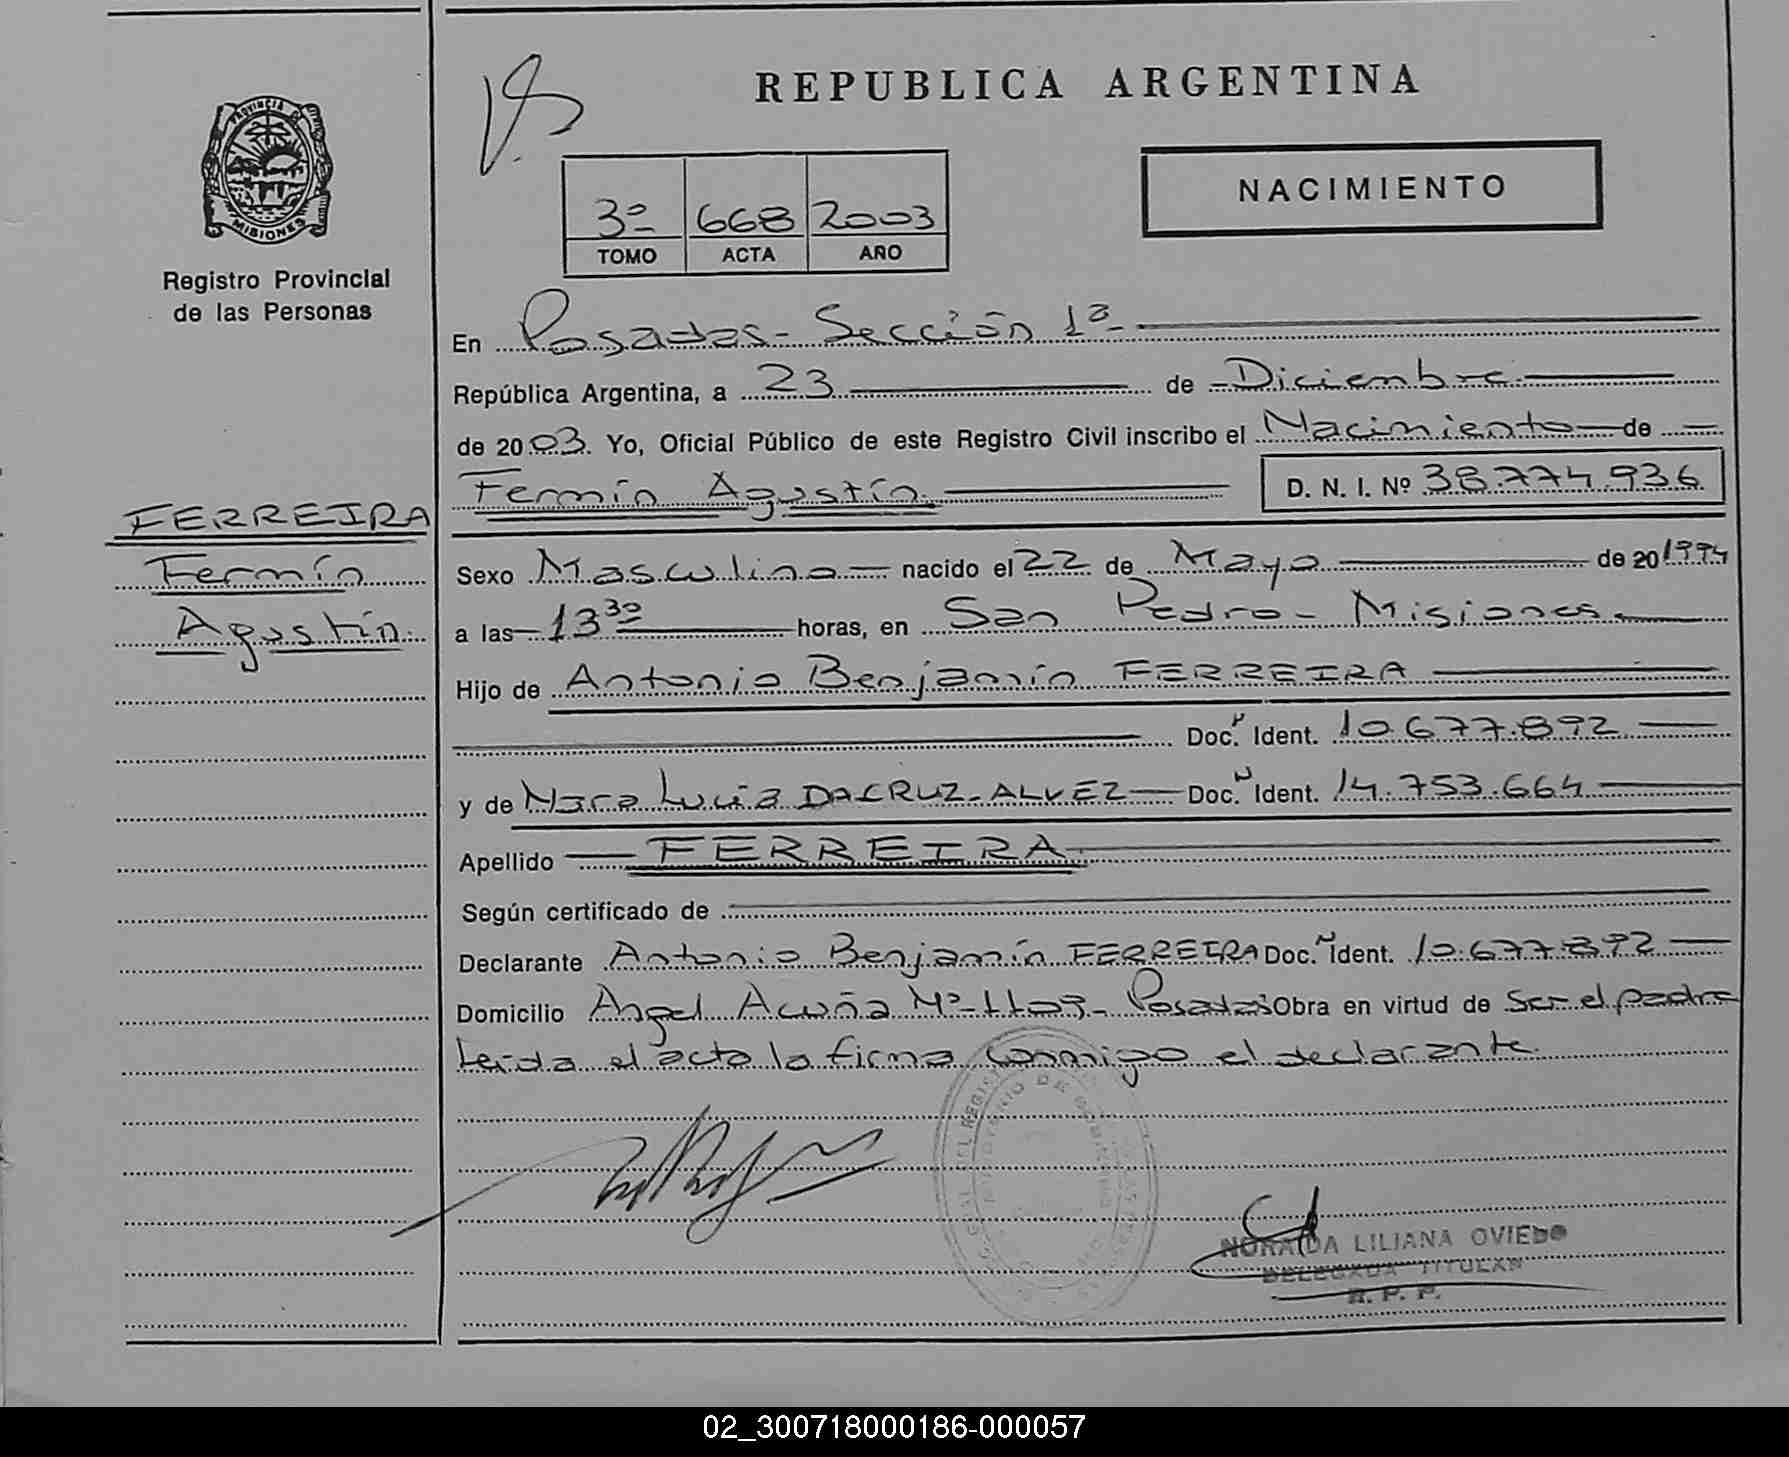 REPUBLICA ARGENTINA
PROVINCIA DE
MISIONES
Registro Provincial
de las Personas
3º 668 2003
TOMO ACTA AÑO
NACIMIENTO
En Posadas - Sección 1ª
República Argentina, a 23 de Diciembre
de 2003. Yo, Oficial Público de este Registro Civil inscribo el Nacimiento de
Fermín Agustín D. N. I. Nº 38.774.936
FERREIRA
Fermín
Agustín
Sexo Masculino nacido el 22 de Mayo de 20 1994
a las 13 30 horas, en San Pedro - Misiones
Hijo de Antonio Benjamín FERREIRA
Doc. Ident. 10.677.892
y de Mara Lucia DACRUZ-ALVEZ Doc. Ident. 14.753.664
Apellido FERREIRA
Según certificado de
Declarante Antonio Benjamín FERREIRA Doc. Ident. 10.677.892
Domicilio Angel Acuña Nº Posadas Obra en virtud de Ser el padre
Leida el acta la firma conmigo el declarante
NORAIDA LILIANA OVIEDO
DELEGADA TITULAR
R. P. P.
02_300718000186-000057